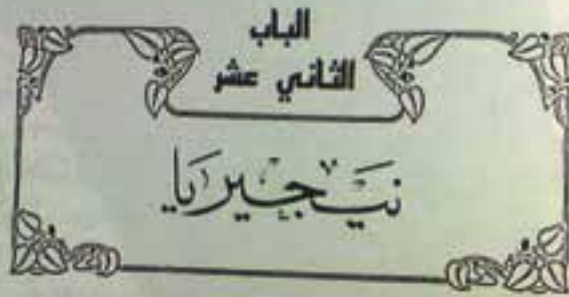 الباب
الثاني عشر
نيجيريا